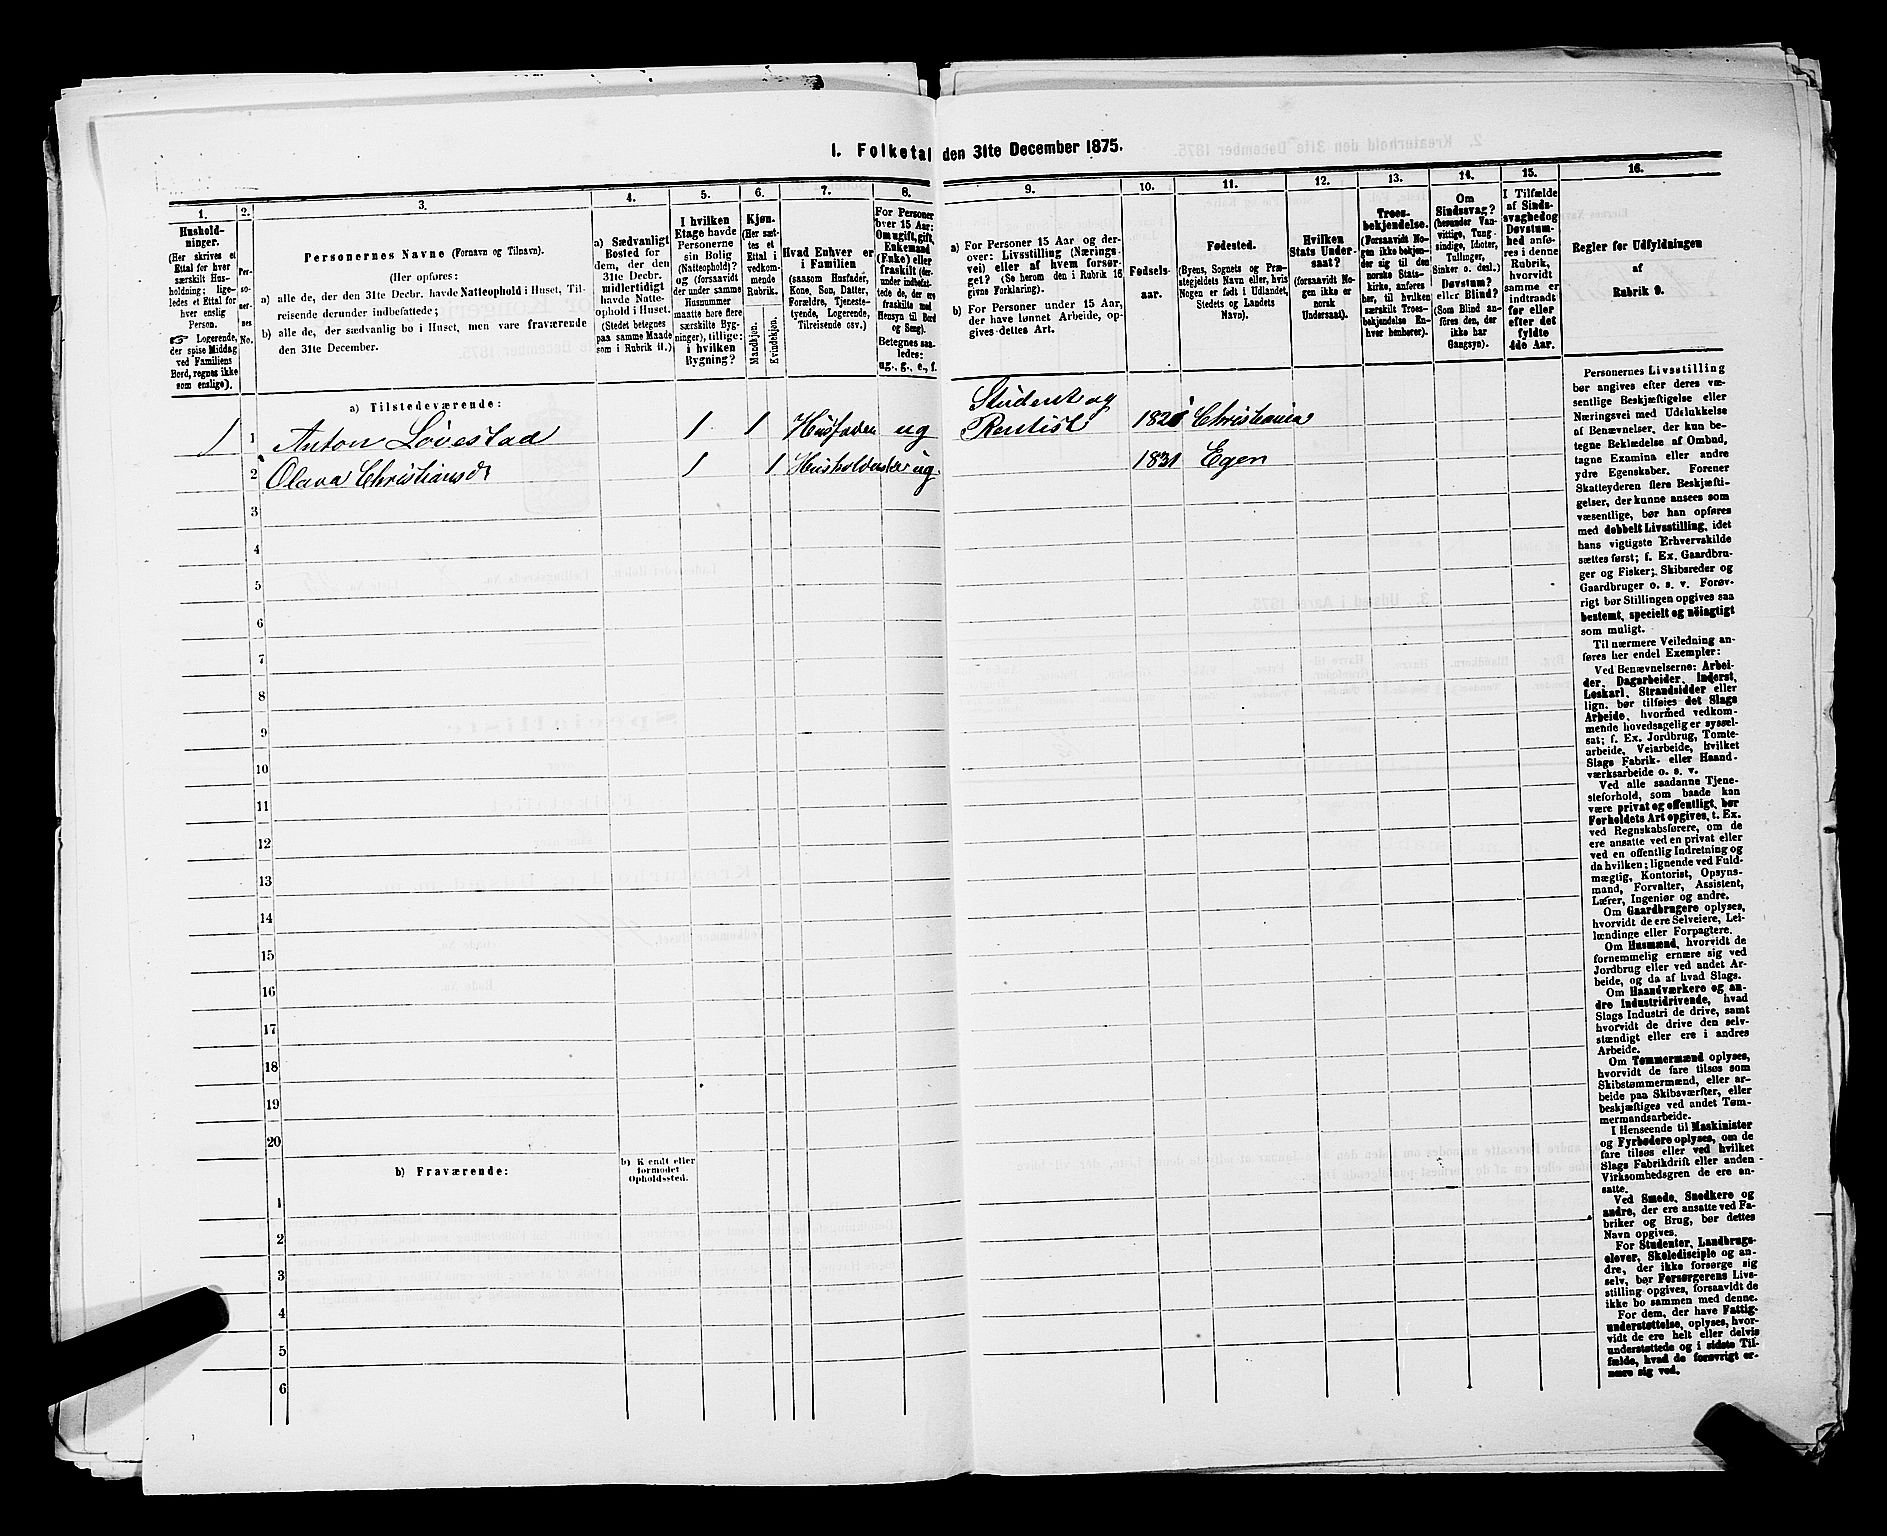 I. Folketal den 31te December 1875.
1.
Hushold-
ninger.
(Her skrives et
Ettal for hver
særskilt Hus-
holdning; lige-
ledes et Ettal for
hver enslig
Person.
☞ Logerende,
der spise Middag
ved Familiens
Bord, regnes ikke
som enslige).
2.
Per-
so-
ner-
nes
No.
3.
Personernes Navne (Fornavn og Tilnavn).
(Her opføres:
a) alle de, der den 31te Decbr. havde Natteophold i Huset, Til-
reisende derunder indbefattede;
b) alle de, der sædvanlig bo i Huset, men vare fraværende
den 31te December.
4.
a) Sædvanligt
Bosted for
dem, der den
31te Decbr.
midlertidigt
havde Natte-
ophold i Huset.
(Stedet betegnes
paa samme Maade
som i Rubrik 11.)
5.
I hvilken
Etage havde
Personerne
sin Bolig
(Natteophold)?
(forsaavidt
der under samme
Husnummer
maatte høre flere
særskilte Byg-
ninger), tillige:
i hvilken
Bygning?
6.
Kjøn.
(Her sæt-
tes et
Ettal i
vedkom-
mende
Rubrik.
Mandkjøn.
Kvindekjøn.
7.
Hvad Enhver er
i Familien
(saasom Husfader,
Kone, Søn, Datter,
Forældre, Tjeneste-
tyende, Logerende,
Tilreisende osv.)
8.
For Personer
over 15 Aar:
Om ugift, gift,
Enkemand
(Enke) eller
fraskilt (der-
under indbefat-
tede de, der ere
fraskilte med
Hensyn til Bord
og Seng).
Betegnes saa-
ledes:
ug., g., e., f.
9.
a) For Personer 15 Aar og der-
over: Livsstilling (Nærings-
vei) eller af hvem forsør-
get? (Se herom den i Rubrik 16
givne Forklaring).
b) For Personer under 15 Aar,
der have lønnet Arbeide, op-
gives dettes Art.
10.
Fødsels-
aar.
11.
Fødested.
(Byens, Sognets og Præ-
stegjeldets Navn eller, hvis
Nogen er født i Udlandet,
Stedets og Landets
Navn).
12.
Hvilken
Stats Under-
saat?
(forsaavidt No-
gen ikke er
norsk
Undersaat).
13.
Troes-
bekjendelse.
(Forsaavidt No-
gen ikke bekjen-
der sig til den
norske Stats-
kirke, anføres
her, til hvilken
særskilt Troes-
bekjendelse En-
hver henhører).
14.
Om
Sindssvag?
(herunder Van-
vittige, Tung-
sindige, Idioter,
Tullinger,
Sinker o. desl.)
Døvstum?
eller Blind?
(Som Blind an-
føres den, der
ikke har
Gangsyn).
15.
I Tilfælde
af Sinds-
svaghed og
Døvstum-
hed anfø-
res i denne
Rubrik,
hvorvidt
samme er
indtraadt
før eller
efter det
fyldte
4de Aar.
16.
Regler for Udfyldningen
af
Rubrik 9.
a) Tilstedeværende:
1 1 Anton Løvestad 1 1 Husfader ug Student og
Rentist 1826 Christiania
2 Olava Christiansdt 1 1 Husholderske ug. 1831 Egen
3
4
5
6
7
8
9
10
11
12
13
14
15
16
17
18
19
20
b) Fraværende:
b) Kjendt eller
formodet
Opholdssted.
1
2
3
4
5
6
Personernes Livsstilling
bør angives efter deres væ-
sentlige Beskjæftigelse eller
Næringsvei med Udslukkelse
af Benævnelser, der kun be-
tegne Beklædelse af Ombud,
tagne Examina eller andre
ydre Egenskaber. Forener
Skatteyderen flere Beskjæfti-
gelser, der kunne ansees som
væsentlige, bør han opføres
med dobbelt Livsstilling, idet
hans vigtigste Erhvervskilde
sættes først; f. Ex. Gaardbru-
ger og Fisker; Skibsreder og
Gaardbruger o. s. v. Forøv-
rigt bør Stillingen opgives saa
bestemt, specielt og nöiagtigt
som muligt.
Til nærmere Veiledning an-
føres her endel Exempler:
Ved Benævnelserne: Arbei-
der, Dagarbeider, Inderst,
Løskarl, Strandsidder eller
lign. bør tilføies det Slags
Arbeide, hvormed vedkom-
mende hovedsagelig er syssel-
sat; f. Ex. Jordbrug, Tomte-
arbeide, Veiarbeide, hvilket
Slags Fabrik- eller Haand-
værksarbeide o. s. v.
Ved alle saadanne Tjene-
steforhold, som baade kan
være privat og offentligt, bør
Forholdets Art opgives, t. Ex.
ved Regnskabsførere, om de
ere ansatte ved en privat eller
ved en offentlig Indretning og
da hvilken; lignende ved Fuld-
mægtig, Kontorist, Opsyns-
mand, Forvalter, Assistent,
Lærer, Ingeniør og andre.
Om Gaardbrugere oplyses,
hvorvidt de ere Selveiere, Lei-
lændinge eller Forpagtere.
Om Husmænd, hvorvidt de
fornemmelig ernære sig ved
Jordbrug eller ved andet Ar-
beide, og da af hvad Slags.
Om Haandværkere og an-
dre Industridrivende, hvad
Slags Industri de drive, samt
hvorvidt de drive den selv-
stændigt eller ere i andres
Arbeide.
Om Tømmermænd oplyses,
hvorvidt de fare tilsøs som
Skibstømmermænd, eller ar-
beide paa Skibsværfter, eller
beskjæftiges ved andet Tøm-
mermandsarbeide.
I Henseende til Maskinister
og Fyrbødere oplyses, om de
fare tilsøs eller ved hvilket
Slags Fabrikdrift eller anden
Virksomhedsgren de ere an-
satte.
Ved Smede, Snedkere og
andre, der ere ansatte ved Fa-
briker og Brug, bør dettes
Navn opgives.
For Studenter, Landbrugs-
elever, Skoledisciple og an-
dre, der ikke forsørge sig
selv, bør Forsørgerens Livs-
stilling opgives, forsaavidt de
ikke bo sammen med denne.
For dem, der have Fattig-
understøttelse, oplyses, hvor-
vidt de ere helt eller delvis
understøttede og i sidste Til-
fælde, hvad de forøvrigt er-
nære sig ved.